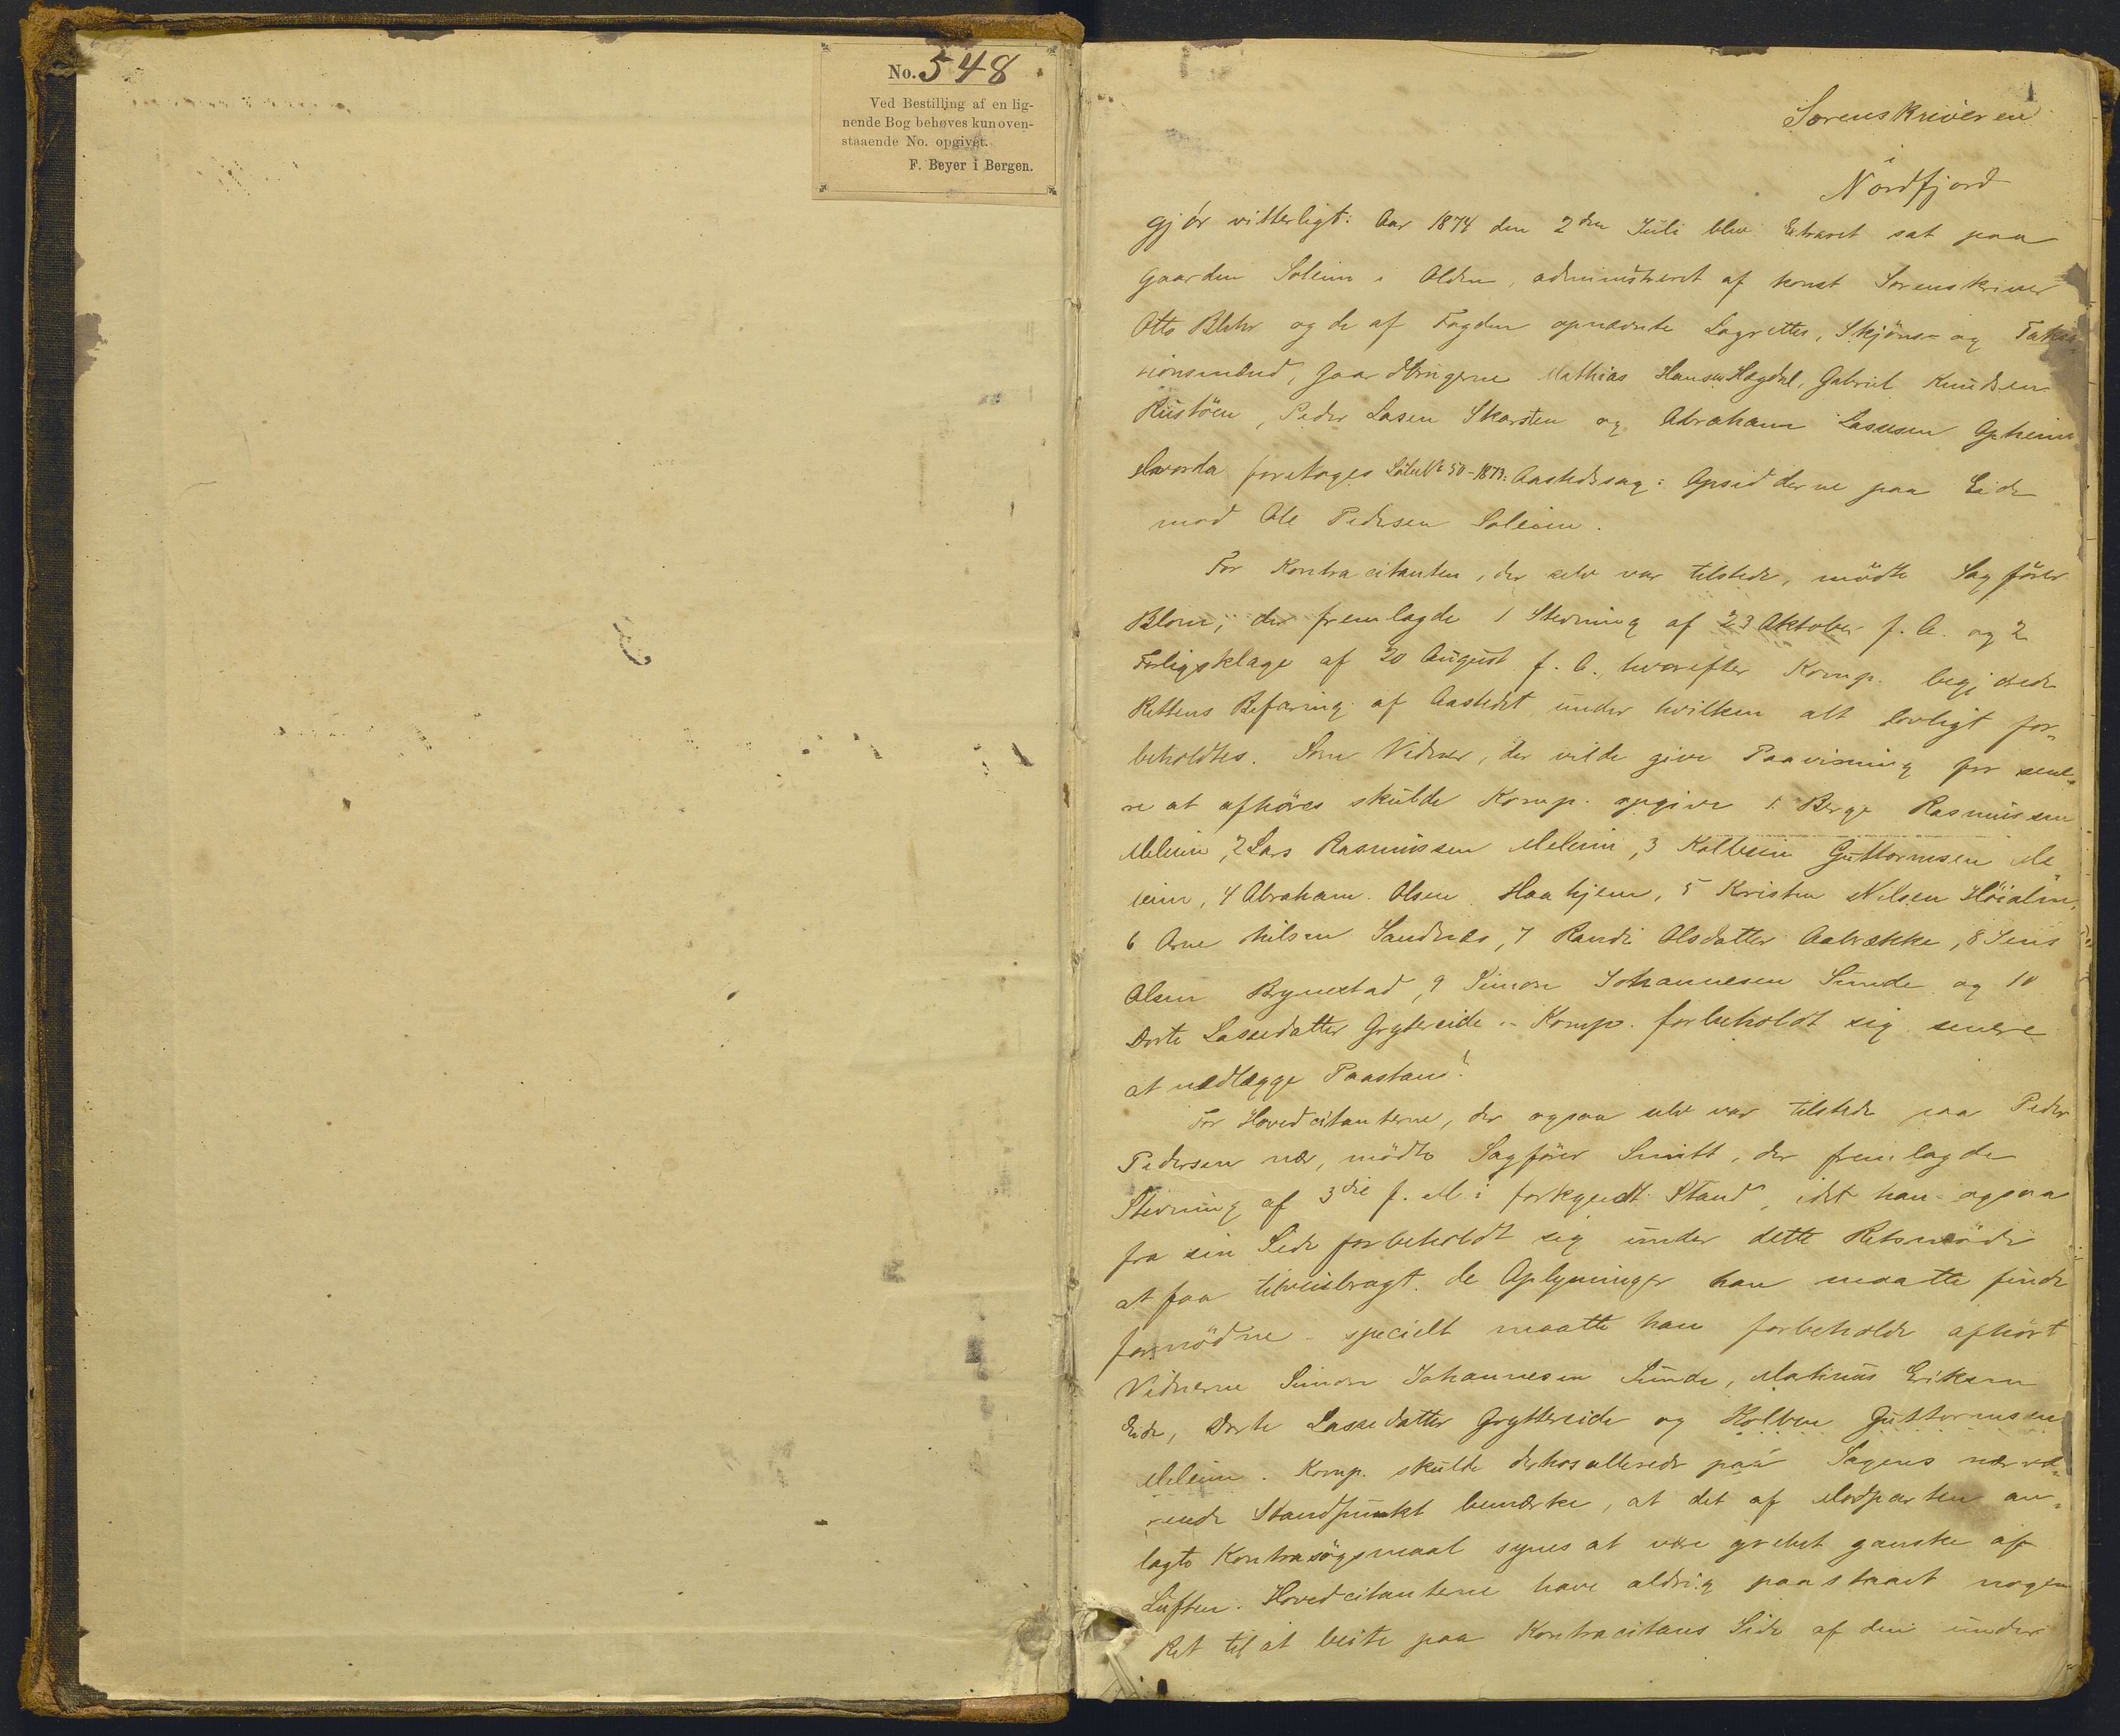 No. 548
Ved Bestilling af en lig-
nende Bog behøves kun oven-
staaende No. opgivet.
F. Beyer i Bergen.
1
Sorenskriveren
i
Nordfjord
gjør vitterligt: Aar 1874 den 2den Juli blev Extraret sat paa
Gaarden Soleim i Olden, administreret af konst Sorenskriver
Otto Blehr og de af Fogden opnævnte Lagrettes, Skjøns- og Taks-
tionsmænd, Gaardbrugerne Mathias Hansen Hagdal, Gabriel Knudsen
Rustøen, Peder Lasen Skarsten og Abraham Lassesen Opheim
hvorda foretoges Løbe No 50-1873: Aastedssag: Opsidderne paa Eide
mod Ole Pedersen Soleim.
For Kontracitanten, der selv var tilstede, mødte Sagfører
Blom, der fremlagde 1 Stevning af 23 Oktober f. A. og 2
Forligsklage af 20 August f. A., hvorefter Komp. begjærede
Rettens Befaring af Aastedet under hvilken alt lovligt for-
beholdtes. Som Vidner, der vilde give Paavisning for sene-
re at afhøres skulde Komp. opgive 1. Berge Rasmussen
Meleim, 2 Lars Rasmussen Meleim, 3 Kolbein Guttormsen Me
leim, 4 Abraham Olsen Haahjem, 5 Kristen Nilsen Høialm,
6 Arne Nilsen Sandnes, 7 Randi Olsdatter Aabrække, 8 Jens
Olsen Brynestad, 9 Simon Johannesen Sunde og 10
Dorte Lassedatter Grytereide. - Komp. forbeholdt sig senere
at nedlægge Paastand.
For Hovedcitanterne, der ogsaa selv var tilstede paa Peder
Pedersen nær, mødte Sagfører Smitt, der fremlagde
Stevning af 3die f. M. i forkyndt Stand, idet han ogsaa
fra sin Side forbeholdt sig under dette Retsmøde
at faa tilveiebragt de Oplysninger han maatte finde
fornødne - specielt maatte han forbeholde afhørt
Vidnerne Simon Johannesen Sunde, Matius Eriksen
Eide, Dorte Lassedatter Gryttereide og Kolben Guttormsen
Meleim. Komp. skulde derhos allerede paa Sagens nærvæ-
rende Standpunkt bemærke, at det af Modparten an-
lagte Kontrasøgsmaal synes at være grebet ganske af
Luften. Hovedcitanterne have aldrig paastaaet nogen
Ret til at beite paa Kontracitans Side af den under